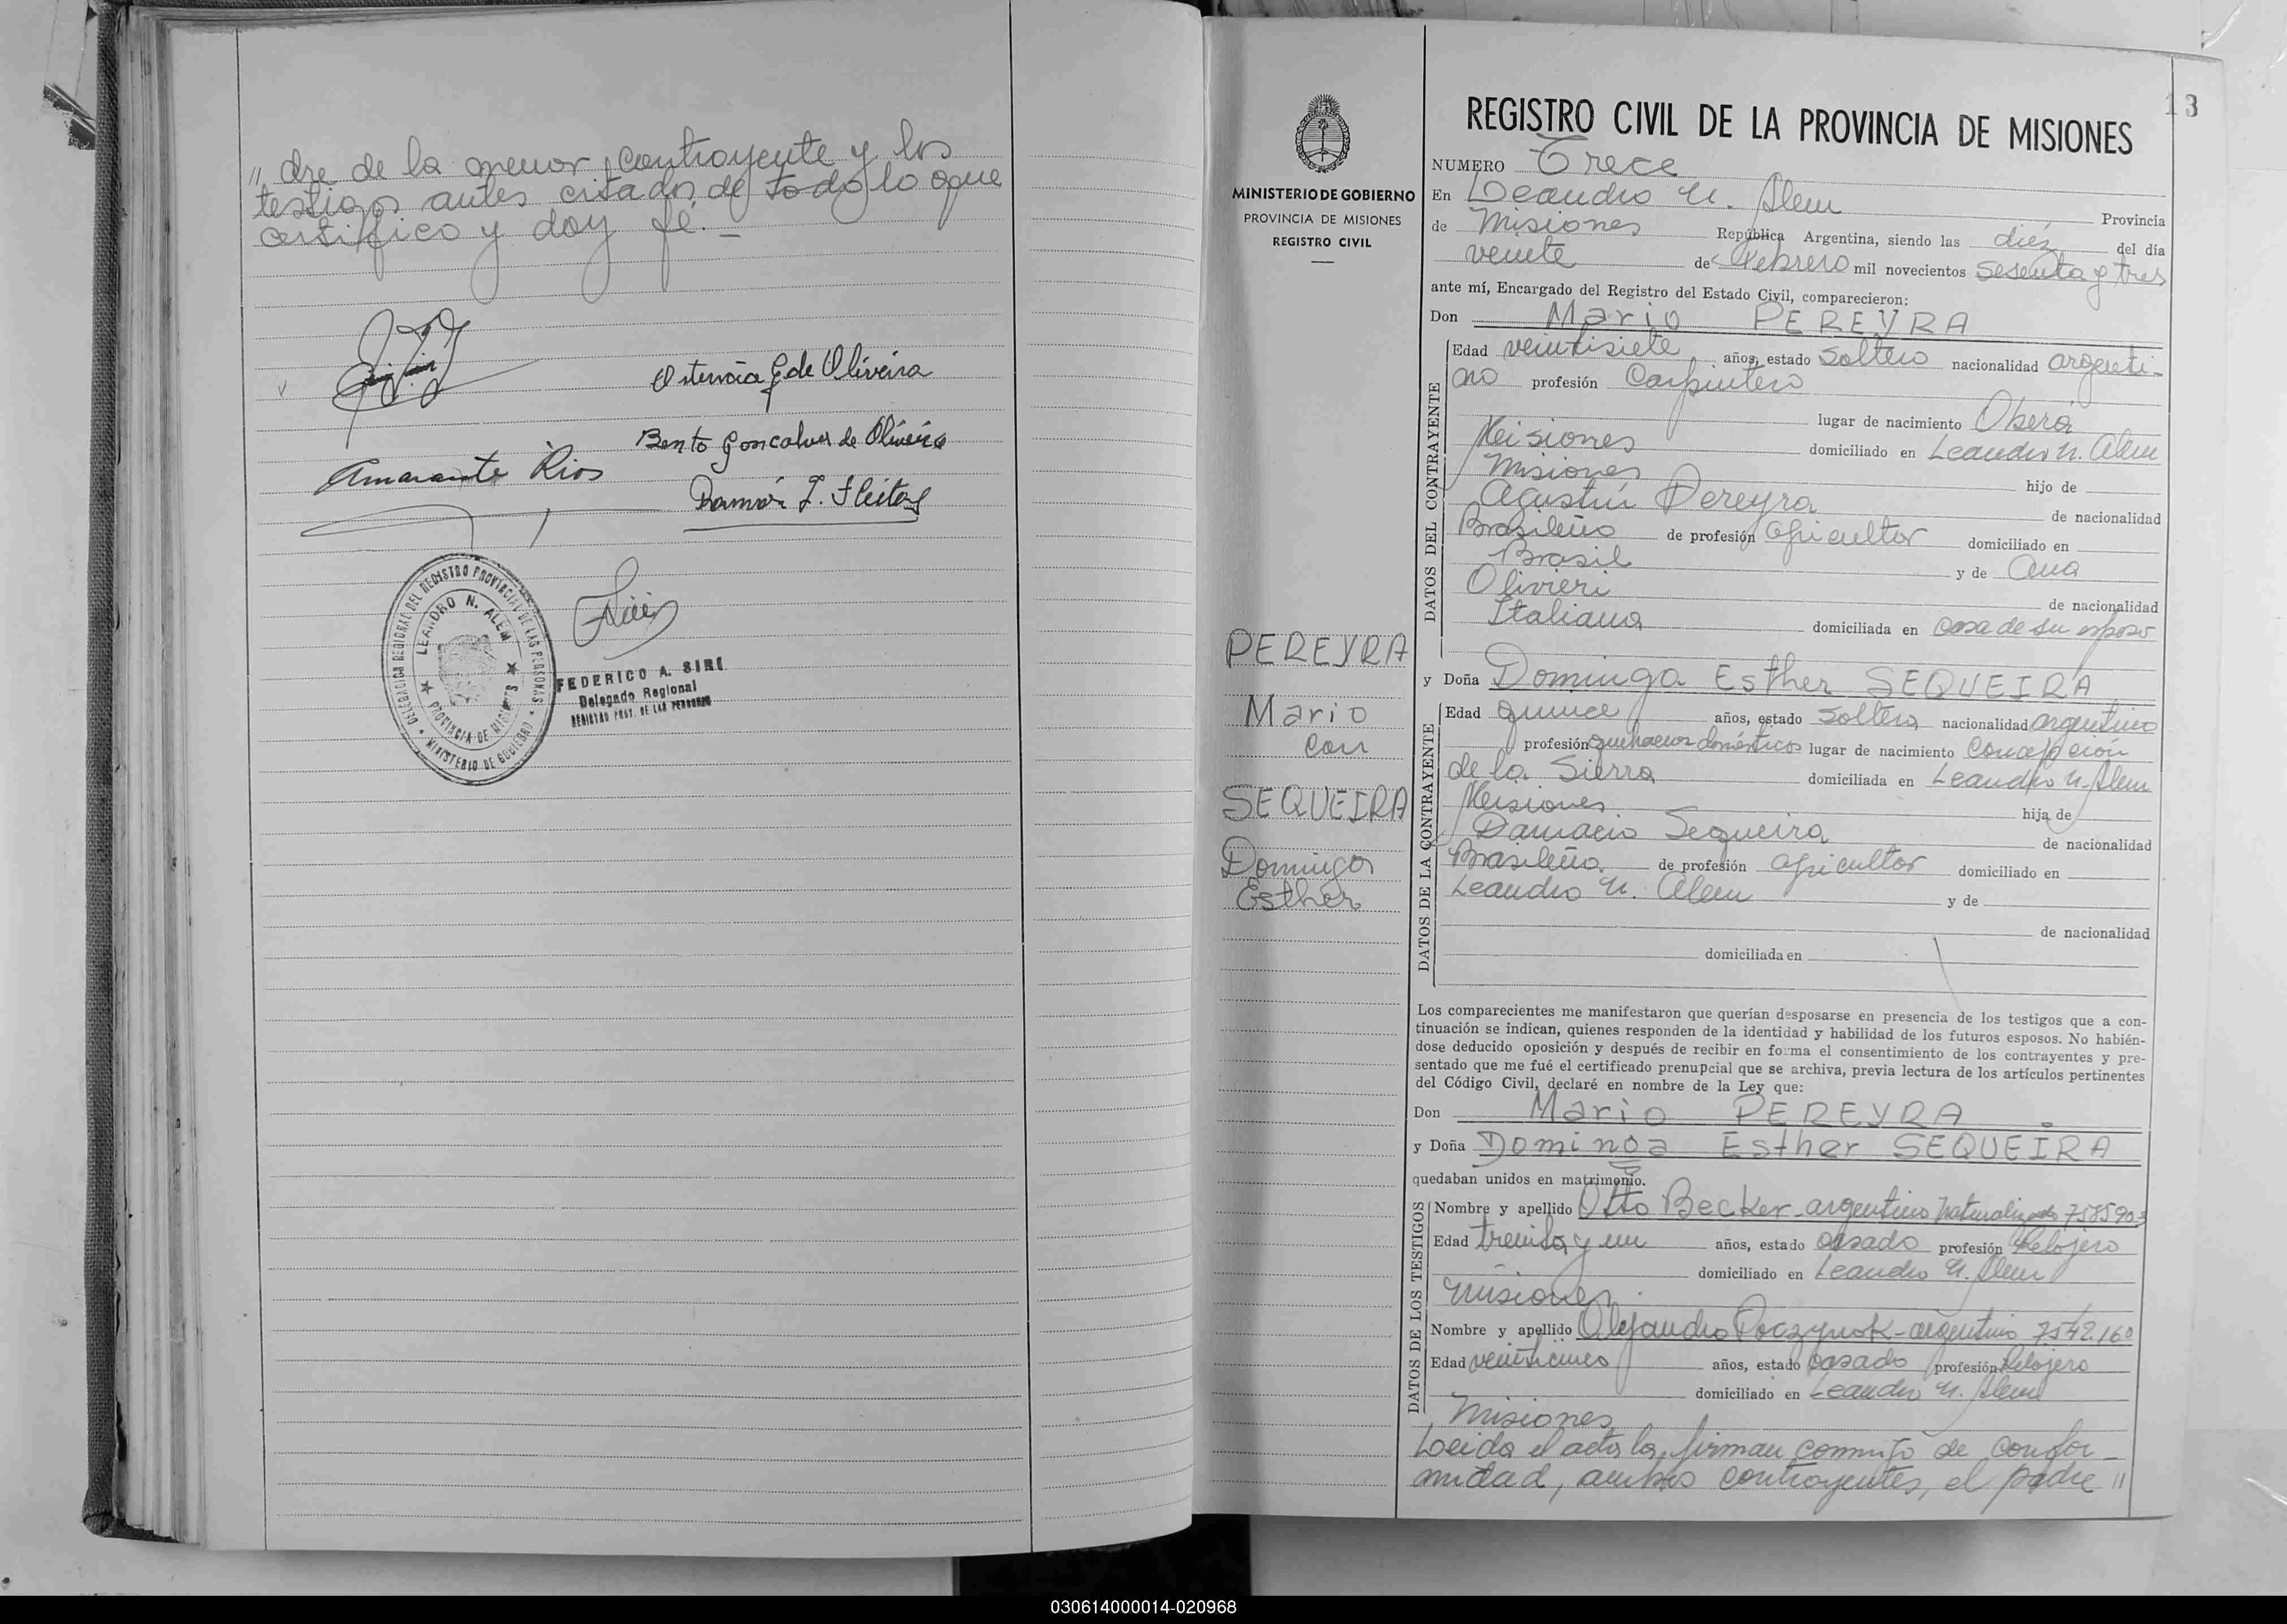 " dre de la menor contrayente y los
testigos antes citados de todo lo que
certifico y doy fé. _
Ostencia G de Oliveira
Bento Goncalves de Oliveira
Amarante Rios
Ramón J. Fleitas
DELEGACION REGIONAL DEL REGISTRO PROVINCIAL DE LAS PERSONAS
LEANDRO N. ALEM
PROVINCIA DE MISIONES
MINISTERIO DE GOBIERNO
FEDERICO A. SIRI
Delegado Regional
REGISTRO PROV. DE LAS PERSONAS
13
MINISTERIO DE GOBIERNO
PROVINCIA DE MISIONES
REGISTRO CIVIL
PEREYRA
Mario
con
SEQUEIRA
Dominga
Esther
REGISTRO CIVIL DE LA PROVINCIA DE MISIONES
NUMERO Trece
En Leandro N. Alem Provincia
de Misiones República Argentina, siendo las diéz del día
veinte de Febrero mil novecientos sesenta y tres
ante mí, Encargado del Registro del Estado Civil, comparecieron:
Don Mario PEREYRA
DATOS DEL CONTRAYENTE
Edad veintisiete años, estado soltero nacionalidad argenti-
no profesión Carpintero
lugar de nacimiento Oberá
Misiones domiciliado en Leandro N. Alem
Misiones hijo de
Agustín Pereyra de nacionalidad
Brasileño de profesión agricultor domiciliado en
Brasil y de Ana
Olivieri de nacionalidad
Italiana domiciliada en casa de su esposo
y Doña Dominga Esther SEQUEIRA
DATOS DE LA CONTRAYENTE
Edad quince años, estado soltera nacionalidad argentina
profesión quehaceres domésticos lugar de nacimiento Concepción
de la Sierra domiciliada en Leandro N. Alem
Misiones hija de
Damacio Sequeira de nacionalidad
Brasileño de profesión agricultor domiciliado en
Leandro N. Alem y de
de nacionalidad
domiciliada en
Los comparecientes me manifestaron que querían desposarse en presencia de los testigos que a con-
tinuación se indican, quienes responden de la identidad y habilidad de los futuros esposos. No habién-
dose deducido oposición y después de recibir en forma el consentimiento de los contrayentes y pre-
sentado que me fué el certificado prenupcial que se archiva, previa lectura de los artículos pertinentes
del Código Civil, declaré en nombre de la Ley que:
Don Mario PEREYRA
y Doña Dominga Esther SEQUEIRA
quedaban unidos en matrimonio.
DATOS DE LOS TESTIGOS
Nombre y apellido Otto Becker - argentino naturalizado 7585903
Edad treinta y un años, estado casado profesión Relojero
domiciliado en Leandro N. Alem
Misiones
Nombre y apellido Alejandro Poczynok - argentino 7542.160
Edad veinticinco años, estado casado profesión Relojero
domiciliado en Leandro N. Alem
Misiones
Leida el acta la firman conmigo de confor_
midad, ambos contrayentes, el padre "
030614000014-020968